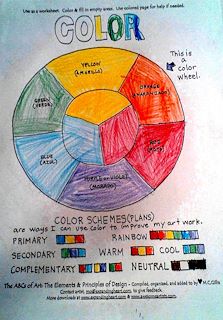 Use as a worksheet. Color & fill in empty areas. Use colored page for help if needed.
COLOR
This is a color wheel.
YELLOW
(AMARILLO)
ORANGE
(ANARANJADO)
GREEN
(VERDE)
RED
(ROJO)
BLUE
(AZUL)
PURPLE or VIOLET
(MORADO)
COLOR SCHEMES (PLANS)
are ways I can use color to improve my art work.
PRIMARY RAINBOW
SECONDARY WARM COOL
COMPLEMENTARY NEUTRAL
The ABCs of Art: The Elements & Principles of Design - Compiled, organized, and added to by M.C.Gillis